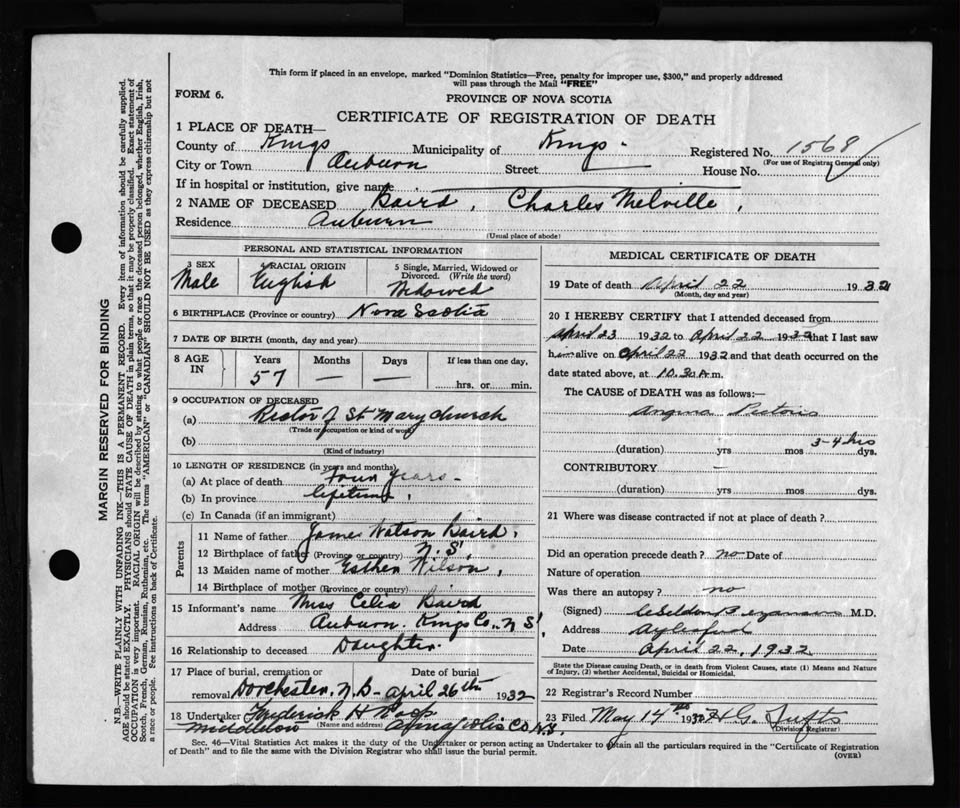 This form if placed in an envelope, marked "Dominion Statistics—Free, penalty for improper use, $300," and properly addressed
will pass through the Mail "FREE"
FORM 6.
PROVINCE OF NOVA SCOTIA
CERTIFICATE OF REGISTRATION OF DEATH
1 PLACE OF DEATH—
County of Kings Municipality of Kings. Registered No. 1568
(For use of Registrar General only)
City or Town Auburn Street House No.
If in hospital or institution, give name
2 NAME OF DECEASED Baird, Charles Melville,
Residence Auburn
(Usual place of abode)
PERSONAL AND STATISTICAL INFORMATION
3 SEX 4 RACIAL ORIGIN 5 Single, Married, Widowed or
Divorced. (Write the word)
Male English Widowed
6 BIRTHPLACE (Province or country) Nova Scotia
7 DATE OF BIRTH (month, day and year)
8 AGE IN Years Months Days If less than one day,
57 — — hrs. or min.
9 OCCUPATION OF DECEASED
(a) Rector of St Mary Church
(Trade or occupation or kind of work)
(b)
(Kind of industry)
10 LENGTH OF RESIDENCE (in years and months)
(a) At place of death four years
(b) In province lifetime,
(c) In Canada (if an immigrant)
Parents
11 Name of father James Watson Baird,
12 Birthplace of father (Province or country) N.S.
13 Maiden name of mother Esther Wilson,
14 Birthplace of mother (Province or country)
15 Informant's name Miss Celia Baird
Address Auburn. Kings Co. N S,
16 Relationship to deceased Daughter.
17 Place of burial, cremation or Date of burial
removal Dorchester, N.B- April 26th 1932
18 Undertaker Frederick H
Middleton (Name and address) Co N.S.
MEDICAL CERTIFICATE OF DEATH
19 Date of death April 22 1932
(Month, day and year)
20 I HEREBY CERTIFY that I attended deceased from
April 23 1932 to April 22 1932 that I last saw
him alive on April 22 1932 and that death occurred on the
date stated above, at 10.30 A.m.
The CAUSE OF DEATH was as follows:—
Angina Pectoris
3-4 hrs
(duration) yrs mos dys.
CONTRIBUTORY —
(duration) yrs mos dys.
21 Where was disease contracted if not at place of death?
Did an operation precede death? no Date of
Nature of operation
Was there an autopsy? no
(Signed) M.D.
Address Aylesford
Date April 22, 1932
State the Disease causing Death, or in death from Violent Causes, state (1) Means and Nature
of Injury, (2) whether Accidental, Suicidal or Homicidal.
22 Registrar's Record Number
23 Filed May 14th 1932 H G. Tufts
(Division Registrar)
Sec. 46—Vital Statistics Act makes it the duty of the Undertaker or person acting as Undertaker to obtain all the particulars required in the "Certificate of Registration
of Death" and to file the same with the Division Registrar who shall issue the burial permit.
(OVER)
MARGIN RESERVED FOR BINDING
N.B.—WRITE PLAINLY WITH UNFADING INK—THIS IS A PERMANENT RECORD. Every item of information should be carefully supplied.
AGE should be stated EXACTLY. PHYSICIANS should STATE CAUSE OF DEATH in plain terms, so that it may be properly classified. Exact statement of
OCCUPATION is very important. RACIAL ORIGIN will be described by stating to what people or race the deceased person belonged, whether English, Irish,
Scotch, French, German, Russian, Ruthenian, etc. The terms "AMERICAN" or "CANADIAN" SHOULD NOT BE USED as they express citizenship but not
a race or people. See instructions on back of Certificate.